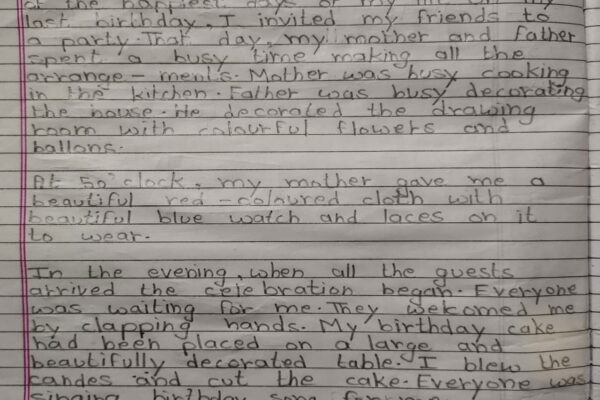 of the happiest days of my life on my
last birthday, I invited my friends to
a party. That day, my mother and father
spent a busy time making all the
arrange - ments. Mother was busy cooking
in the kitchen. Father was busy decorating
the house. He decorated the drawing
room with colourful flowers and
ballons.
At 50'clock, my mother gave me a
beautiful red - coloured cloth with
beautiful blue watch and laces on it
to wear.
In the evening, when all the guests
arrived the celebration began. Everyone
was waiting for me. They welcomed me
by clapping hands. My birthday cake
had been placed on a large and
beautifully decorated table. I blew the
candes and cut the cake. Everyone was
singing birthday song for me